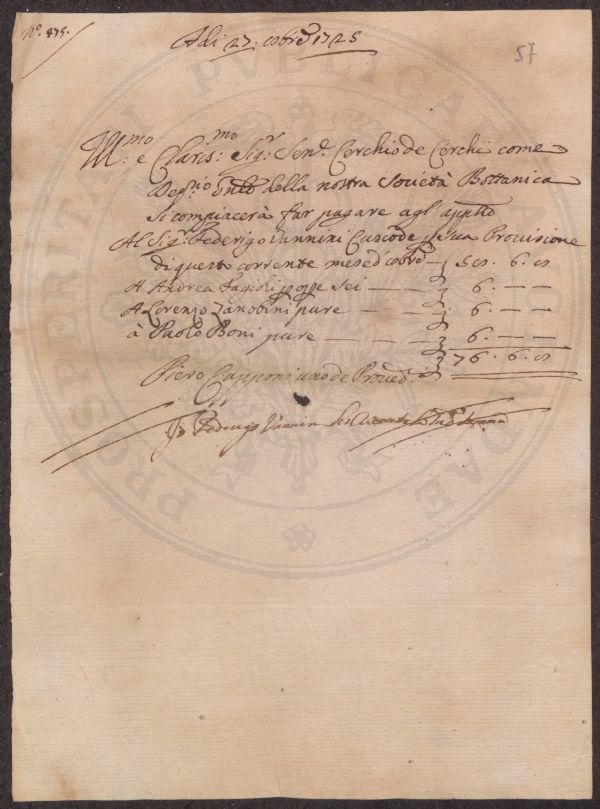 N.° 475.
57
Adi 27: 8bre 1725
Ill.mo e Claris.mo Sig.r Sen.e Cerchio de Cerchi come
Dep.rio della nostra Società Bottanica
si compiacerà far pagare agl' app.ti
Al Sig.r Federigo Vannini Custode p. sua Provisione
di questo corrente mese d' 8bre
A Andrea Fagioli p. opre sei — — — 6. — —
A Lorenzo Zanobini pure — — — 6. — —
à Paolo Boni pure — — — 6. — —
76. 6.
Piero Capponi uno de Proved.i
Io Federigo Vannini
PROSPERITATI PVBLICAE AVGENDAE